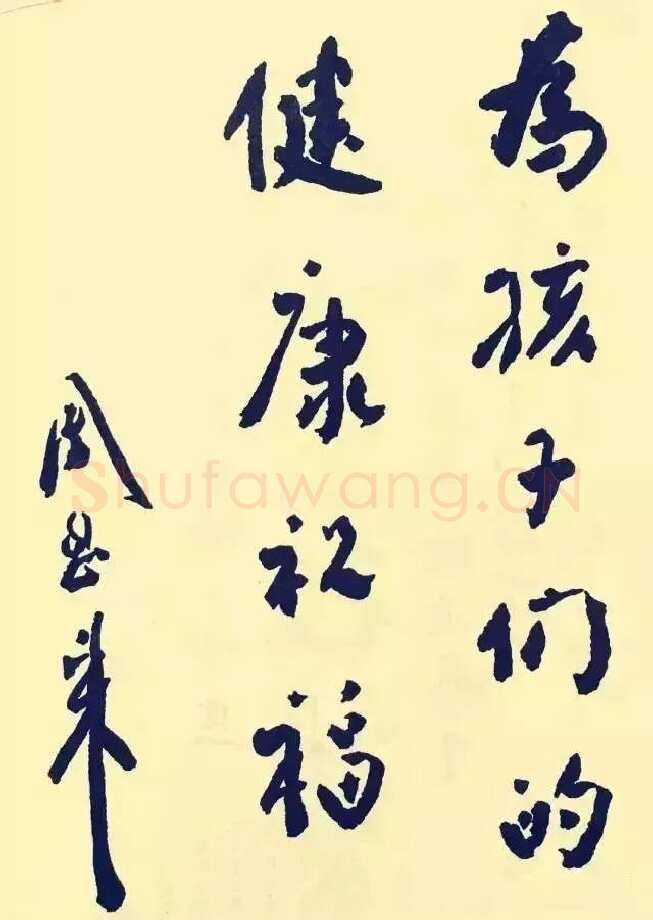 為孩子们的
健康祝福
周恩来
Shufawang.CN